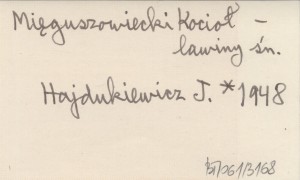 Mięguszowiecki Kocioł –
lawiny śn.
Hajdukiewicz J. *1948